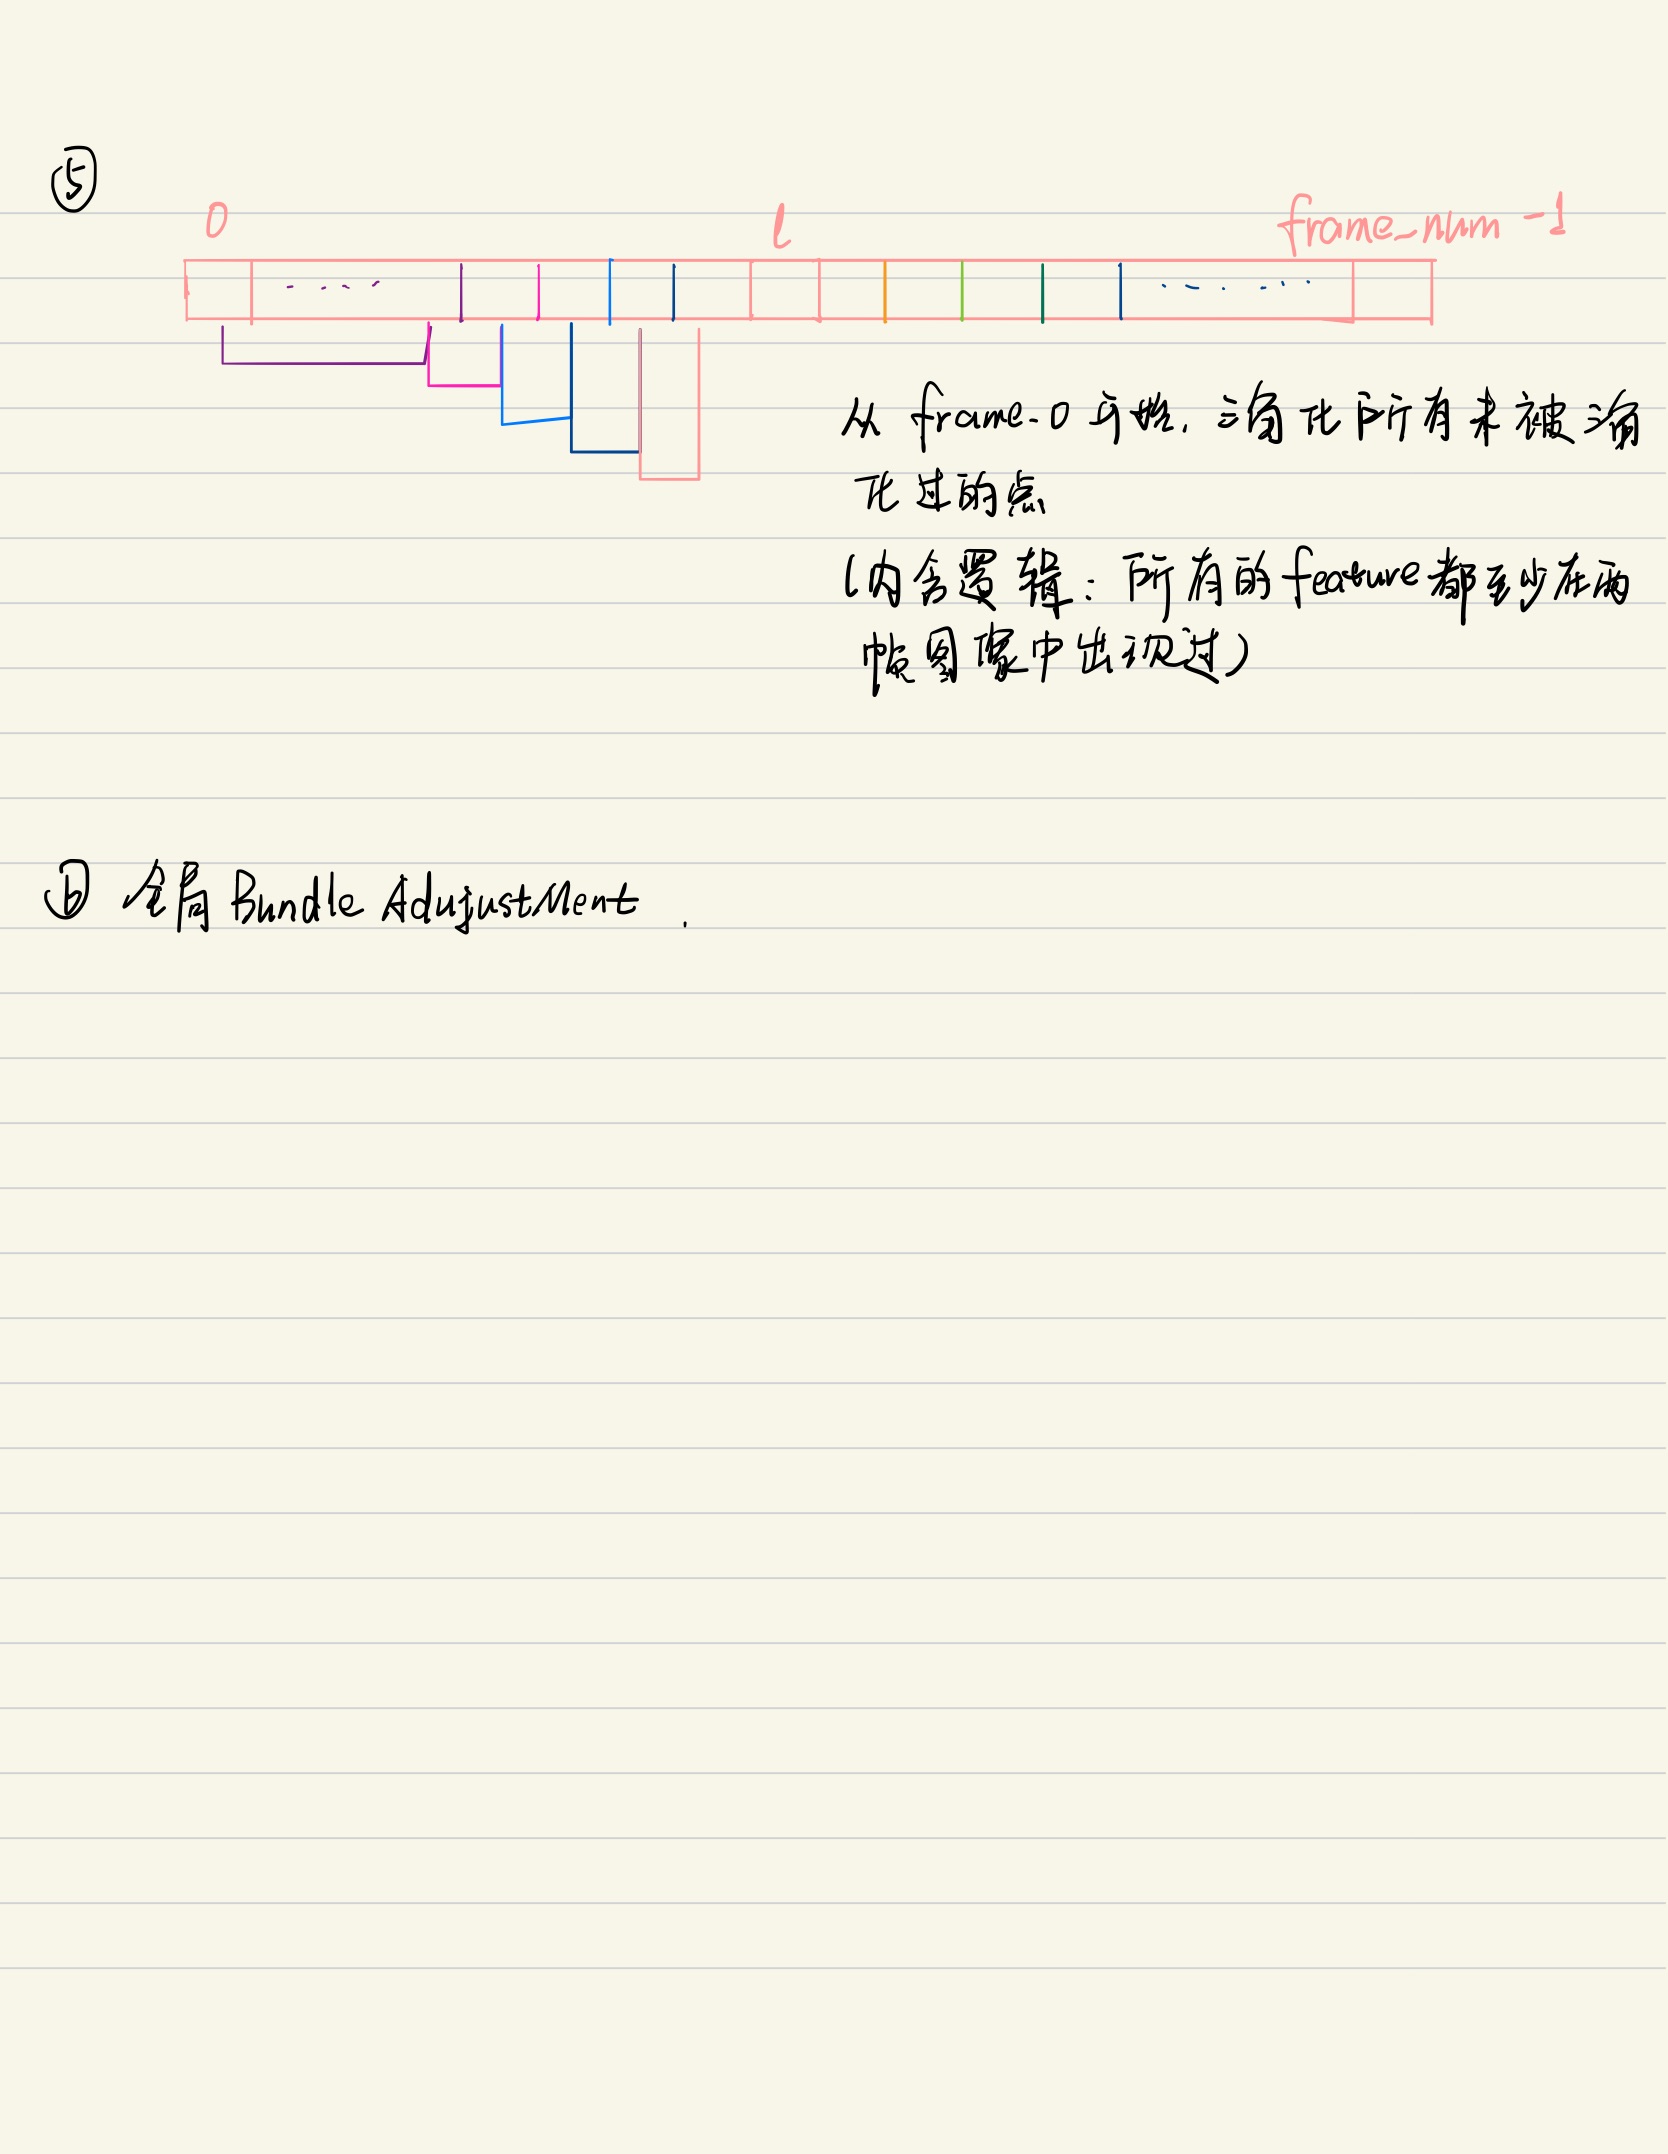 ⑤
0 l frame_num -1
从 frame-0 开始，三角化所有未被三角
化过的点
(内含逻辑：所有的feature都至少在两
帧图像中出现过)
⑥ 全局 Bundle AdujustMent.